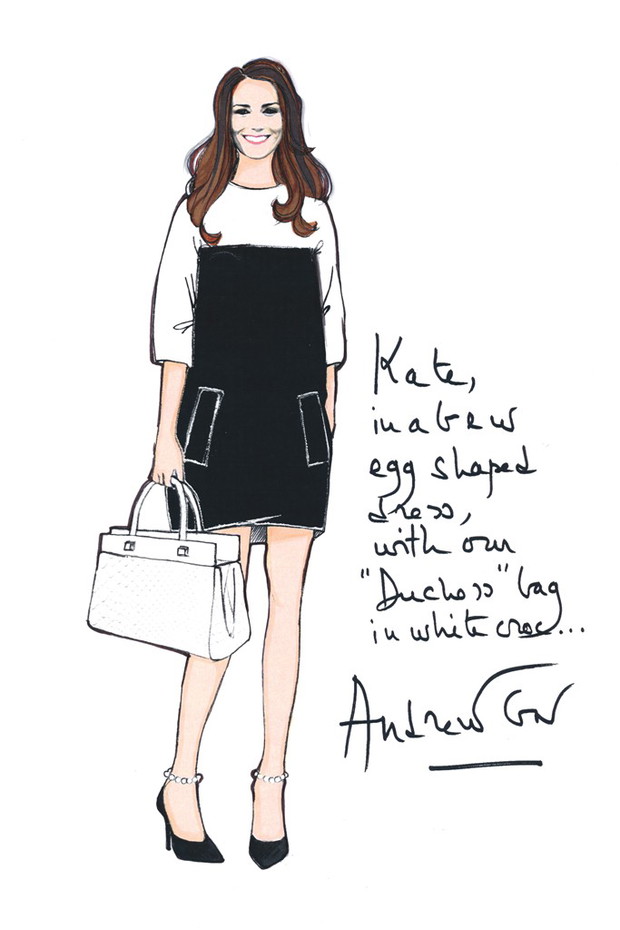 Kate,
in a b & w
egg shaped
dress,
with our
"Duchess" bag
in white croc...
Andrew Gn